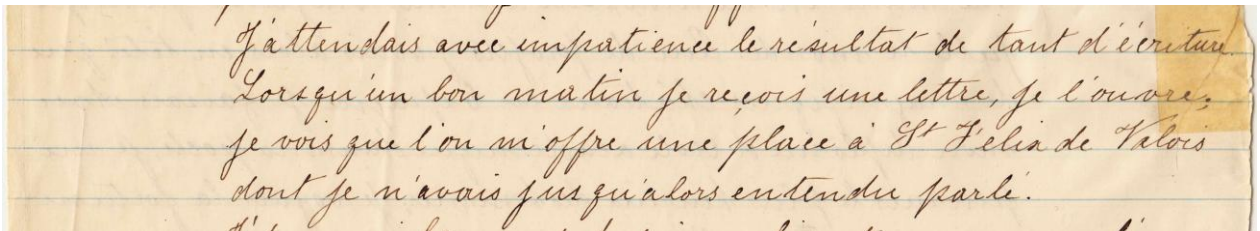 J'attendais avec impatience le résultat de tant d'écriture.
Lorsqu'un bon matin je reçois une lettre, je l'ouvre,
je vois que l'on m'offre une place à St Félix de Valois
dont je n'avais jusqu'alors entendu parlé.